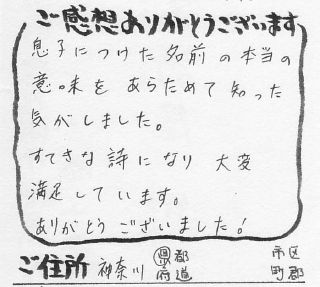 ご感想ありがとうございます
息子につけた名前の本当の
意味を あらためて知った
気がしました。
すてきな詩になり 大変
満足しています。
ありがとう ございました!
ご住所 神奈川 県都府道 市区町郡